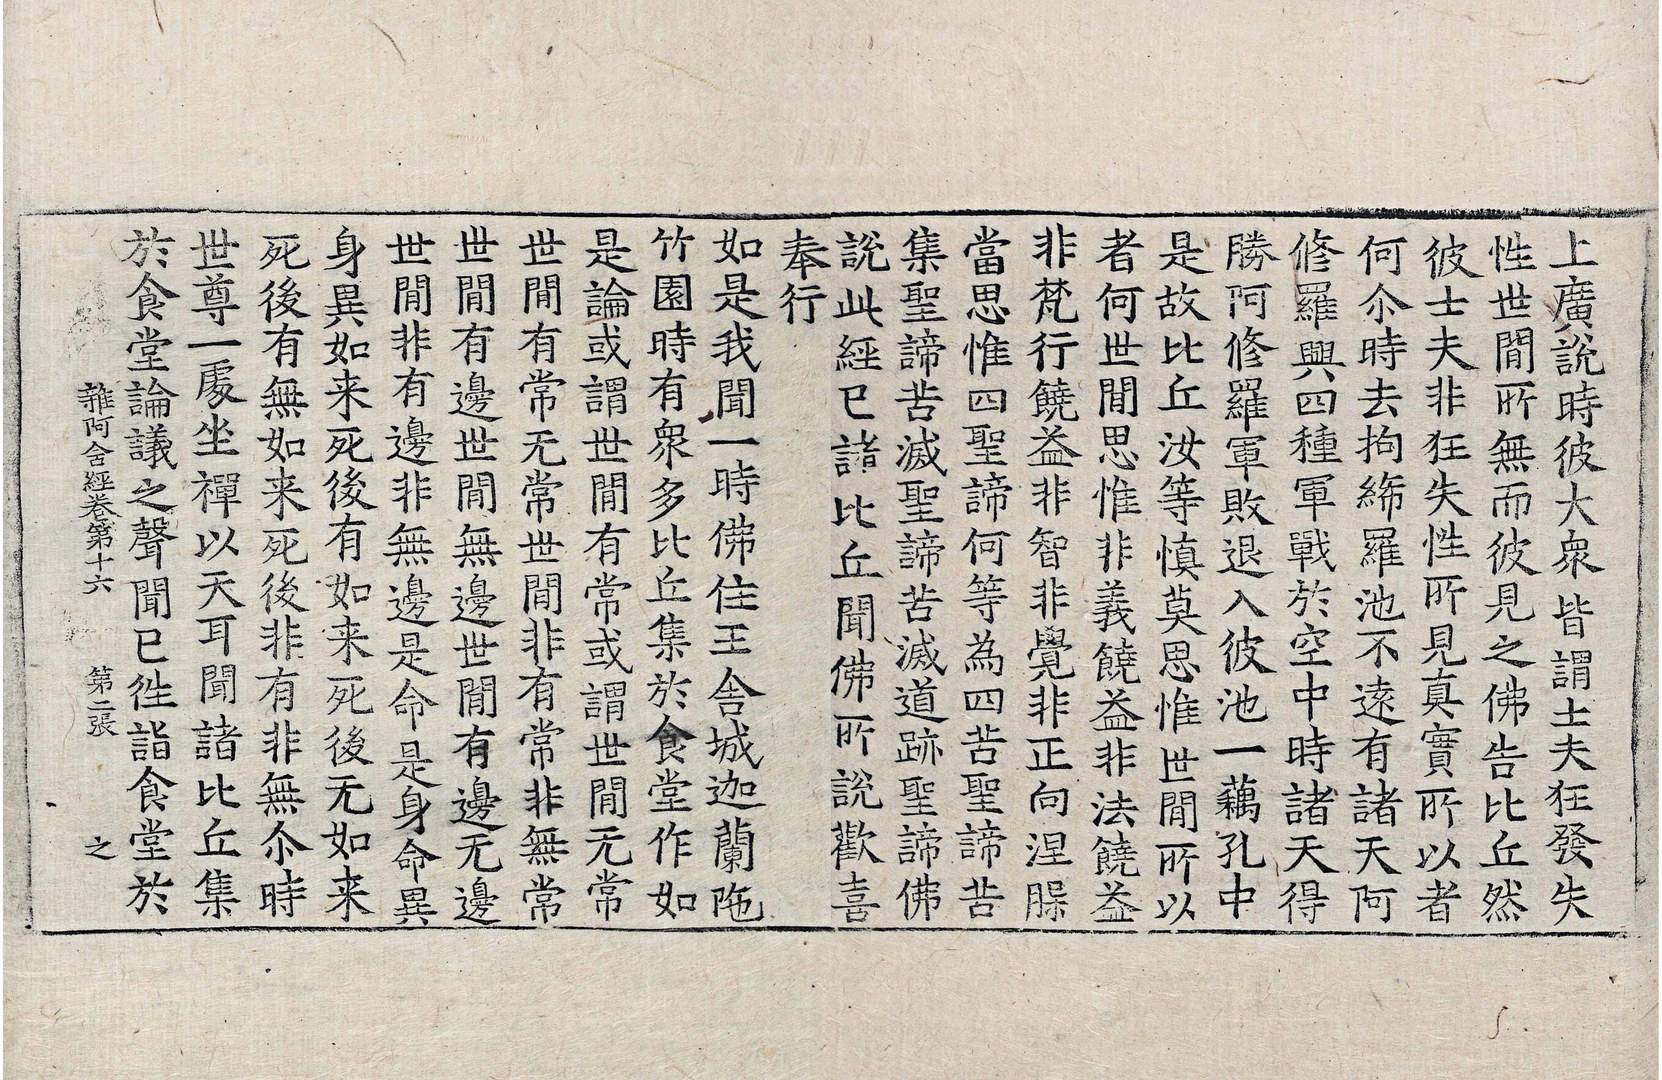 上廣說時彼大衆皆謂士夫狂發失
性世閒所無而彼見之佛告比丘然
彼士夫非狂失性所見真實所以者
何尒時去拘絺羅池不遠有諸天阿
修羅興四種軍戰於空中時諸天得
勝阿修羅軍敗退入彼池一藕孔中
是故比丘汝等慎莫思惟世閒所以
者何世閒思惟非義饒益非法饒益
非梵行饒益非智非覺非正向涅槃
當思惟四聖諦何等為四苦聖諦苦
集聖諦苦滅聖諦苦滅道跡聖諦佛
說此經已諸比丘聞佛所說歡喜
奉行
如是我聞一時佛住王舍城迦蘭陁
竹園時有衆多比丘集於食堂作如
是論或謂世閒有常或謂世閒无常
世閒有常无常世閒非有常非無常
世閒有邊世閒無邊世閒有邊无邊
世閒非有邊非無邊是命是身命異
身異如来死後有如来死後无如来
死後有無如来死後非有非無尒時
世尊一處坐禪以天耳聞諸比丘集
於食堂論議之聲聞已徃詣食堂於
雜阿含經卷第十六 第二張 之